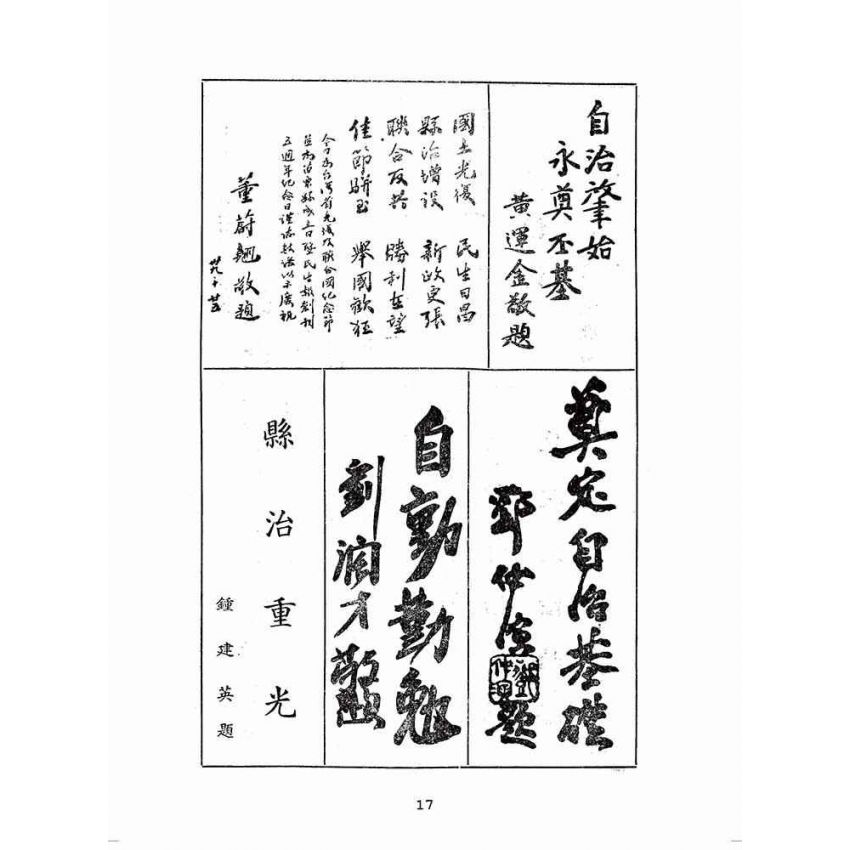 自治肇始
永奠丕基
黃運金敬題
國土光復 民生日昌
縣治增設 新政更張
聯合反共 勝利在望
佳節騈至 舉國歡狂
今日為台灣省光復及聯合國紀念節
五週年紀念日謹添數語以示慶祝
董蔚翹敬題
卅九十廿五
奠定自治基礎
鄧仲演題
自勤勤勉
劉潤才敬題
縣治重光
鍾建英題
17